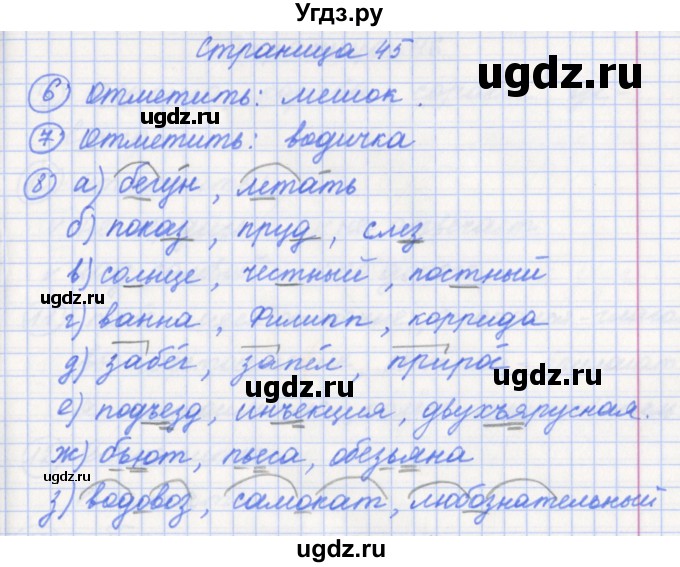 Угдз.ру
Страница 45
ugdz.ru
6 Отметить: мешок.
7 Отметить: водичка
8 а) бегун, летать
б) показ, пруд, слез
в) солнце, честный, постный
ugdz.ru
г) ванна, Филипп, коррида
ugdz.ru
д) забег, запел, прирос
ugdz.ru
е) подъезд, инъекция, двухъярусная.
ugdz.ru
ж) бьют, пьеса, обезьяна
з) водовоз, самокат, любознательный
ugdz.ru